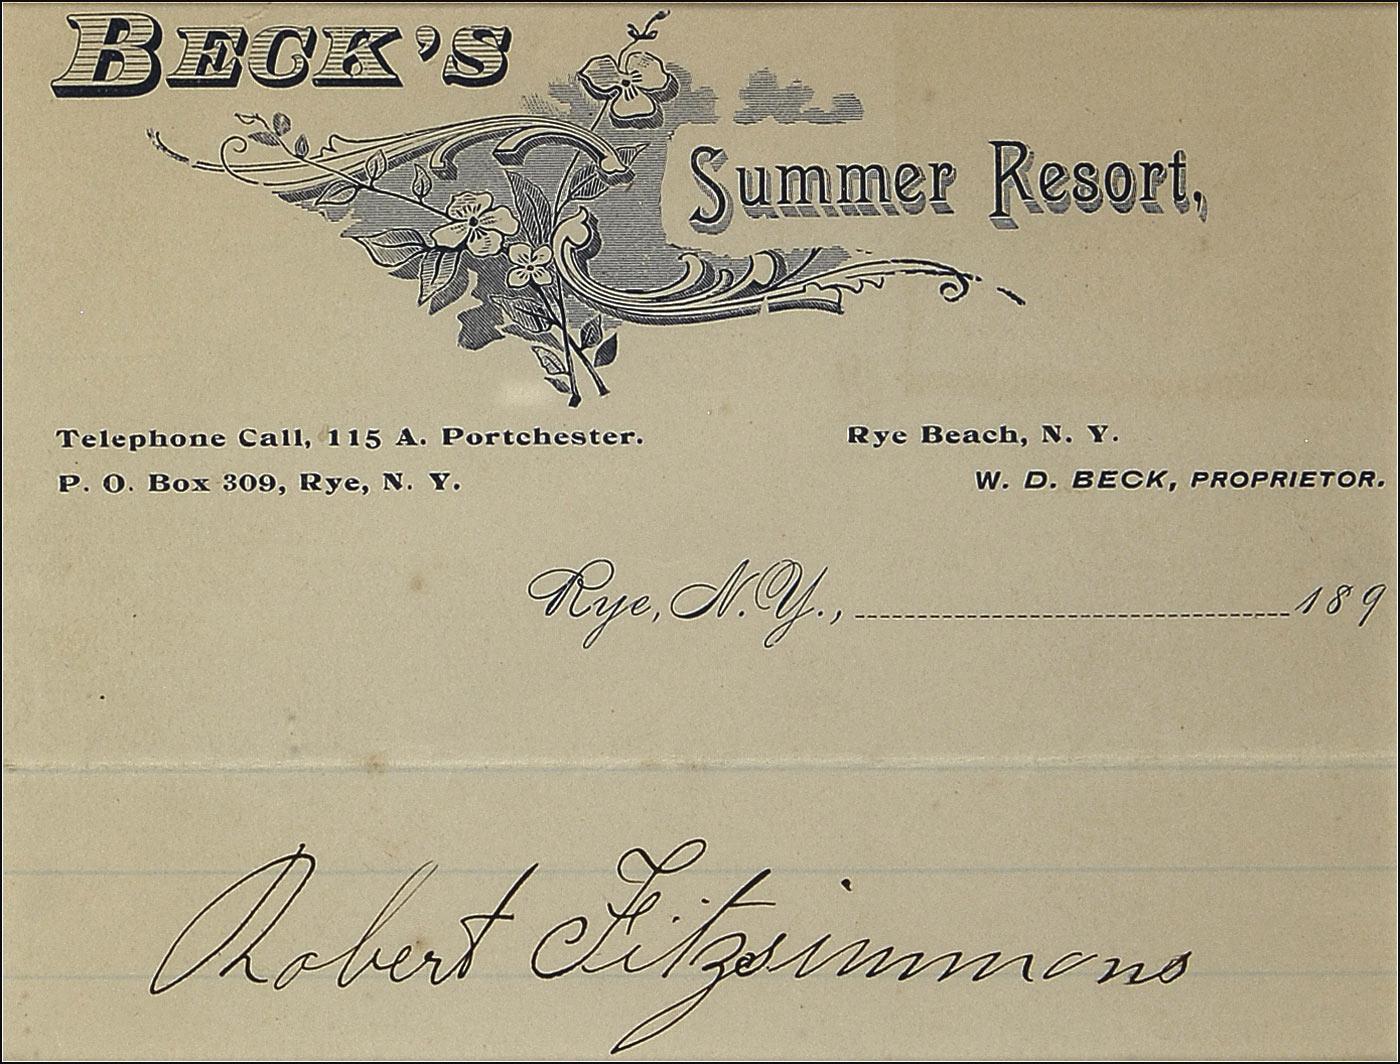 BECK'S
Summer Resort,
Telephone Call, 115 A. Portchester.
P. O. Box 309, Rye, N. Y.
Rye Beach, N. Y.
W. D. BECK, PROPRIETOR.
Rye, N. Y., 189
Robert Fitzsimmons